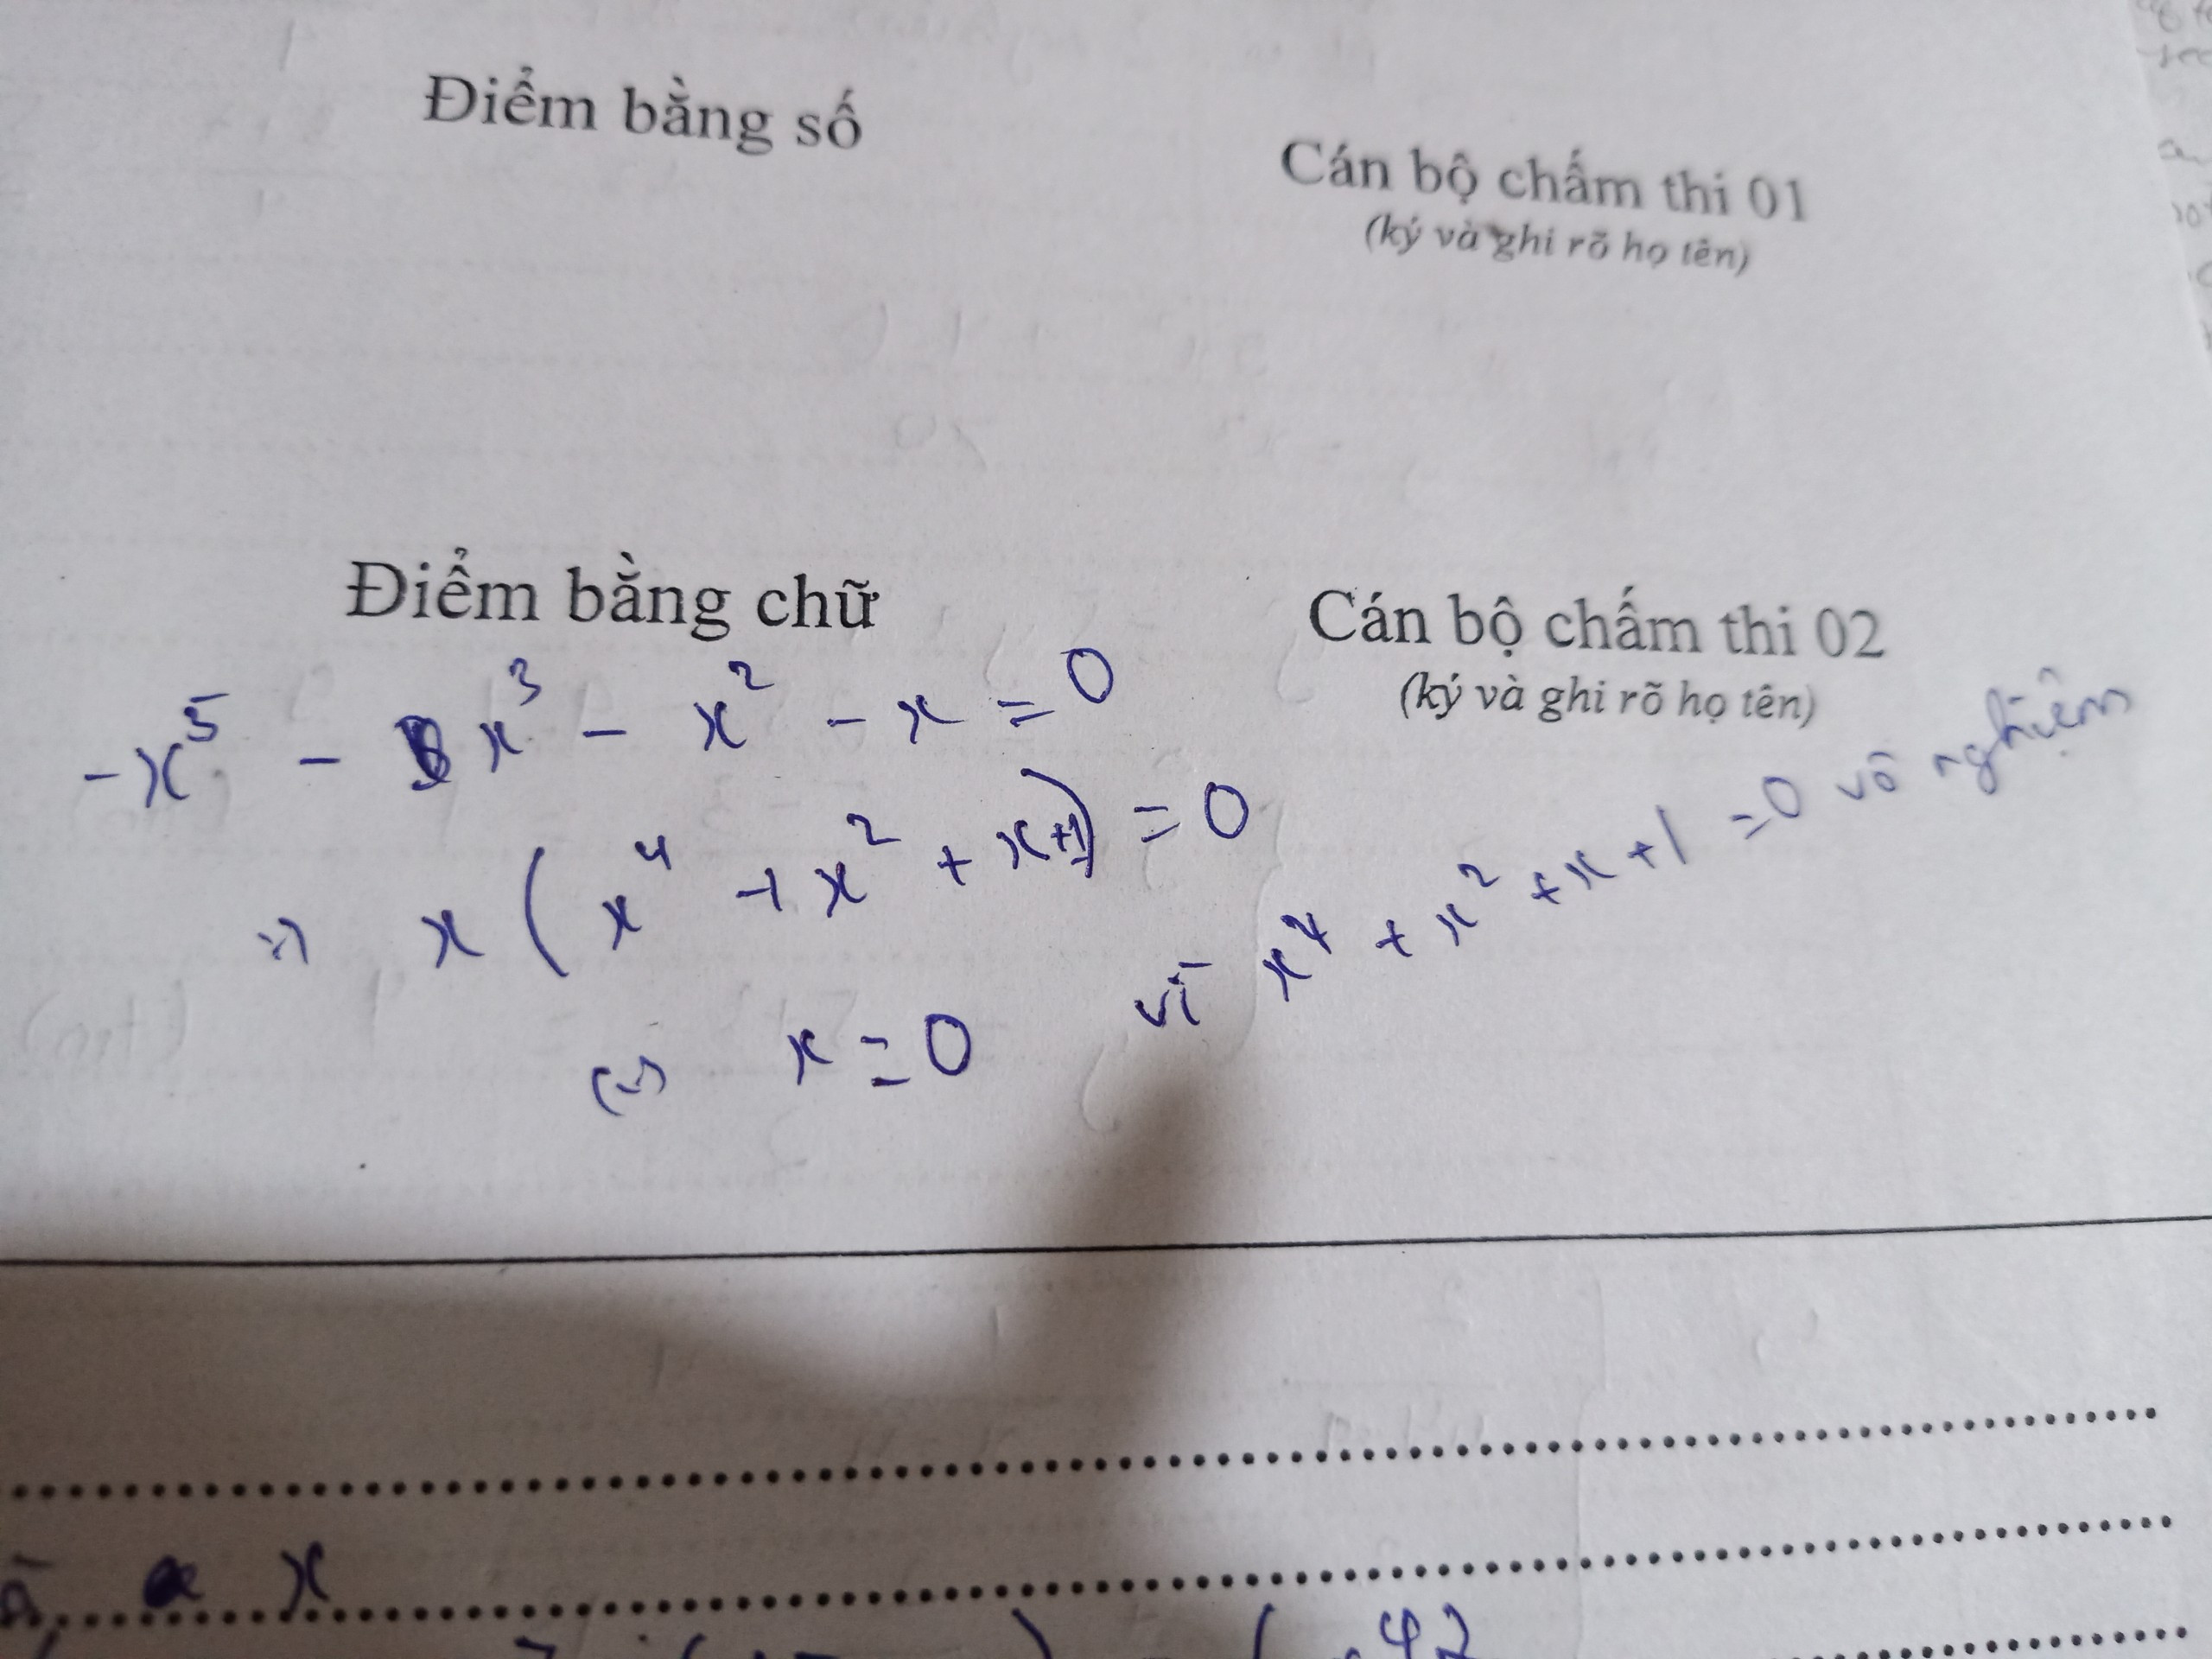 Điểm bằng số
Cán bộ chấm thi 01
(ký và ghi rõ họ tên)
Điểm bằng chữ
Cán bộ chấm thi 02
(ký và ghi rõ họ tên)
-x⁵ - x³ - x² - x = 0
=> x(x⁴ + x² + x+1) = 0
<=> x = 0 vì x⁴ + x² + x + 1 = 0 vô nghiệm
x